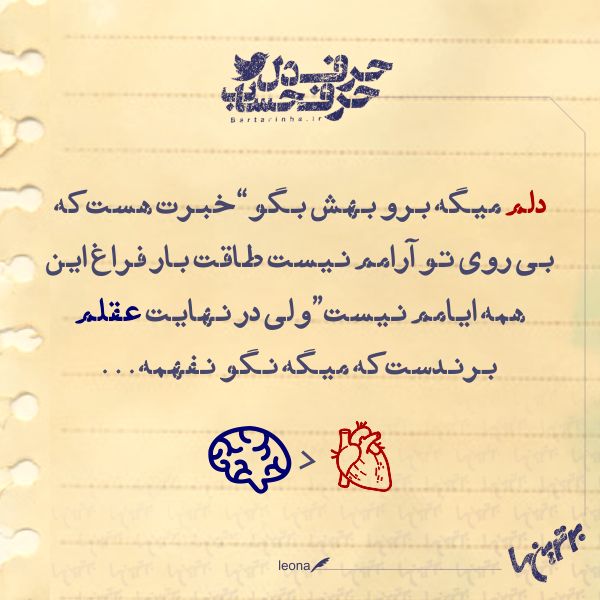 حرف دل
حرف حساب
Bartarinha.ir
دلم میگه برو بهش بگو “خبرت هست که
بی روی تو آرامم نیست طاقت بار فراغ این
همه ایامم نیست” ولی در نهایت عقلم
برندست که میگه نگو نفهمه...
>
برترین ها
leona